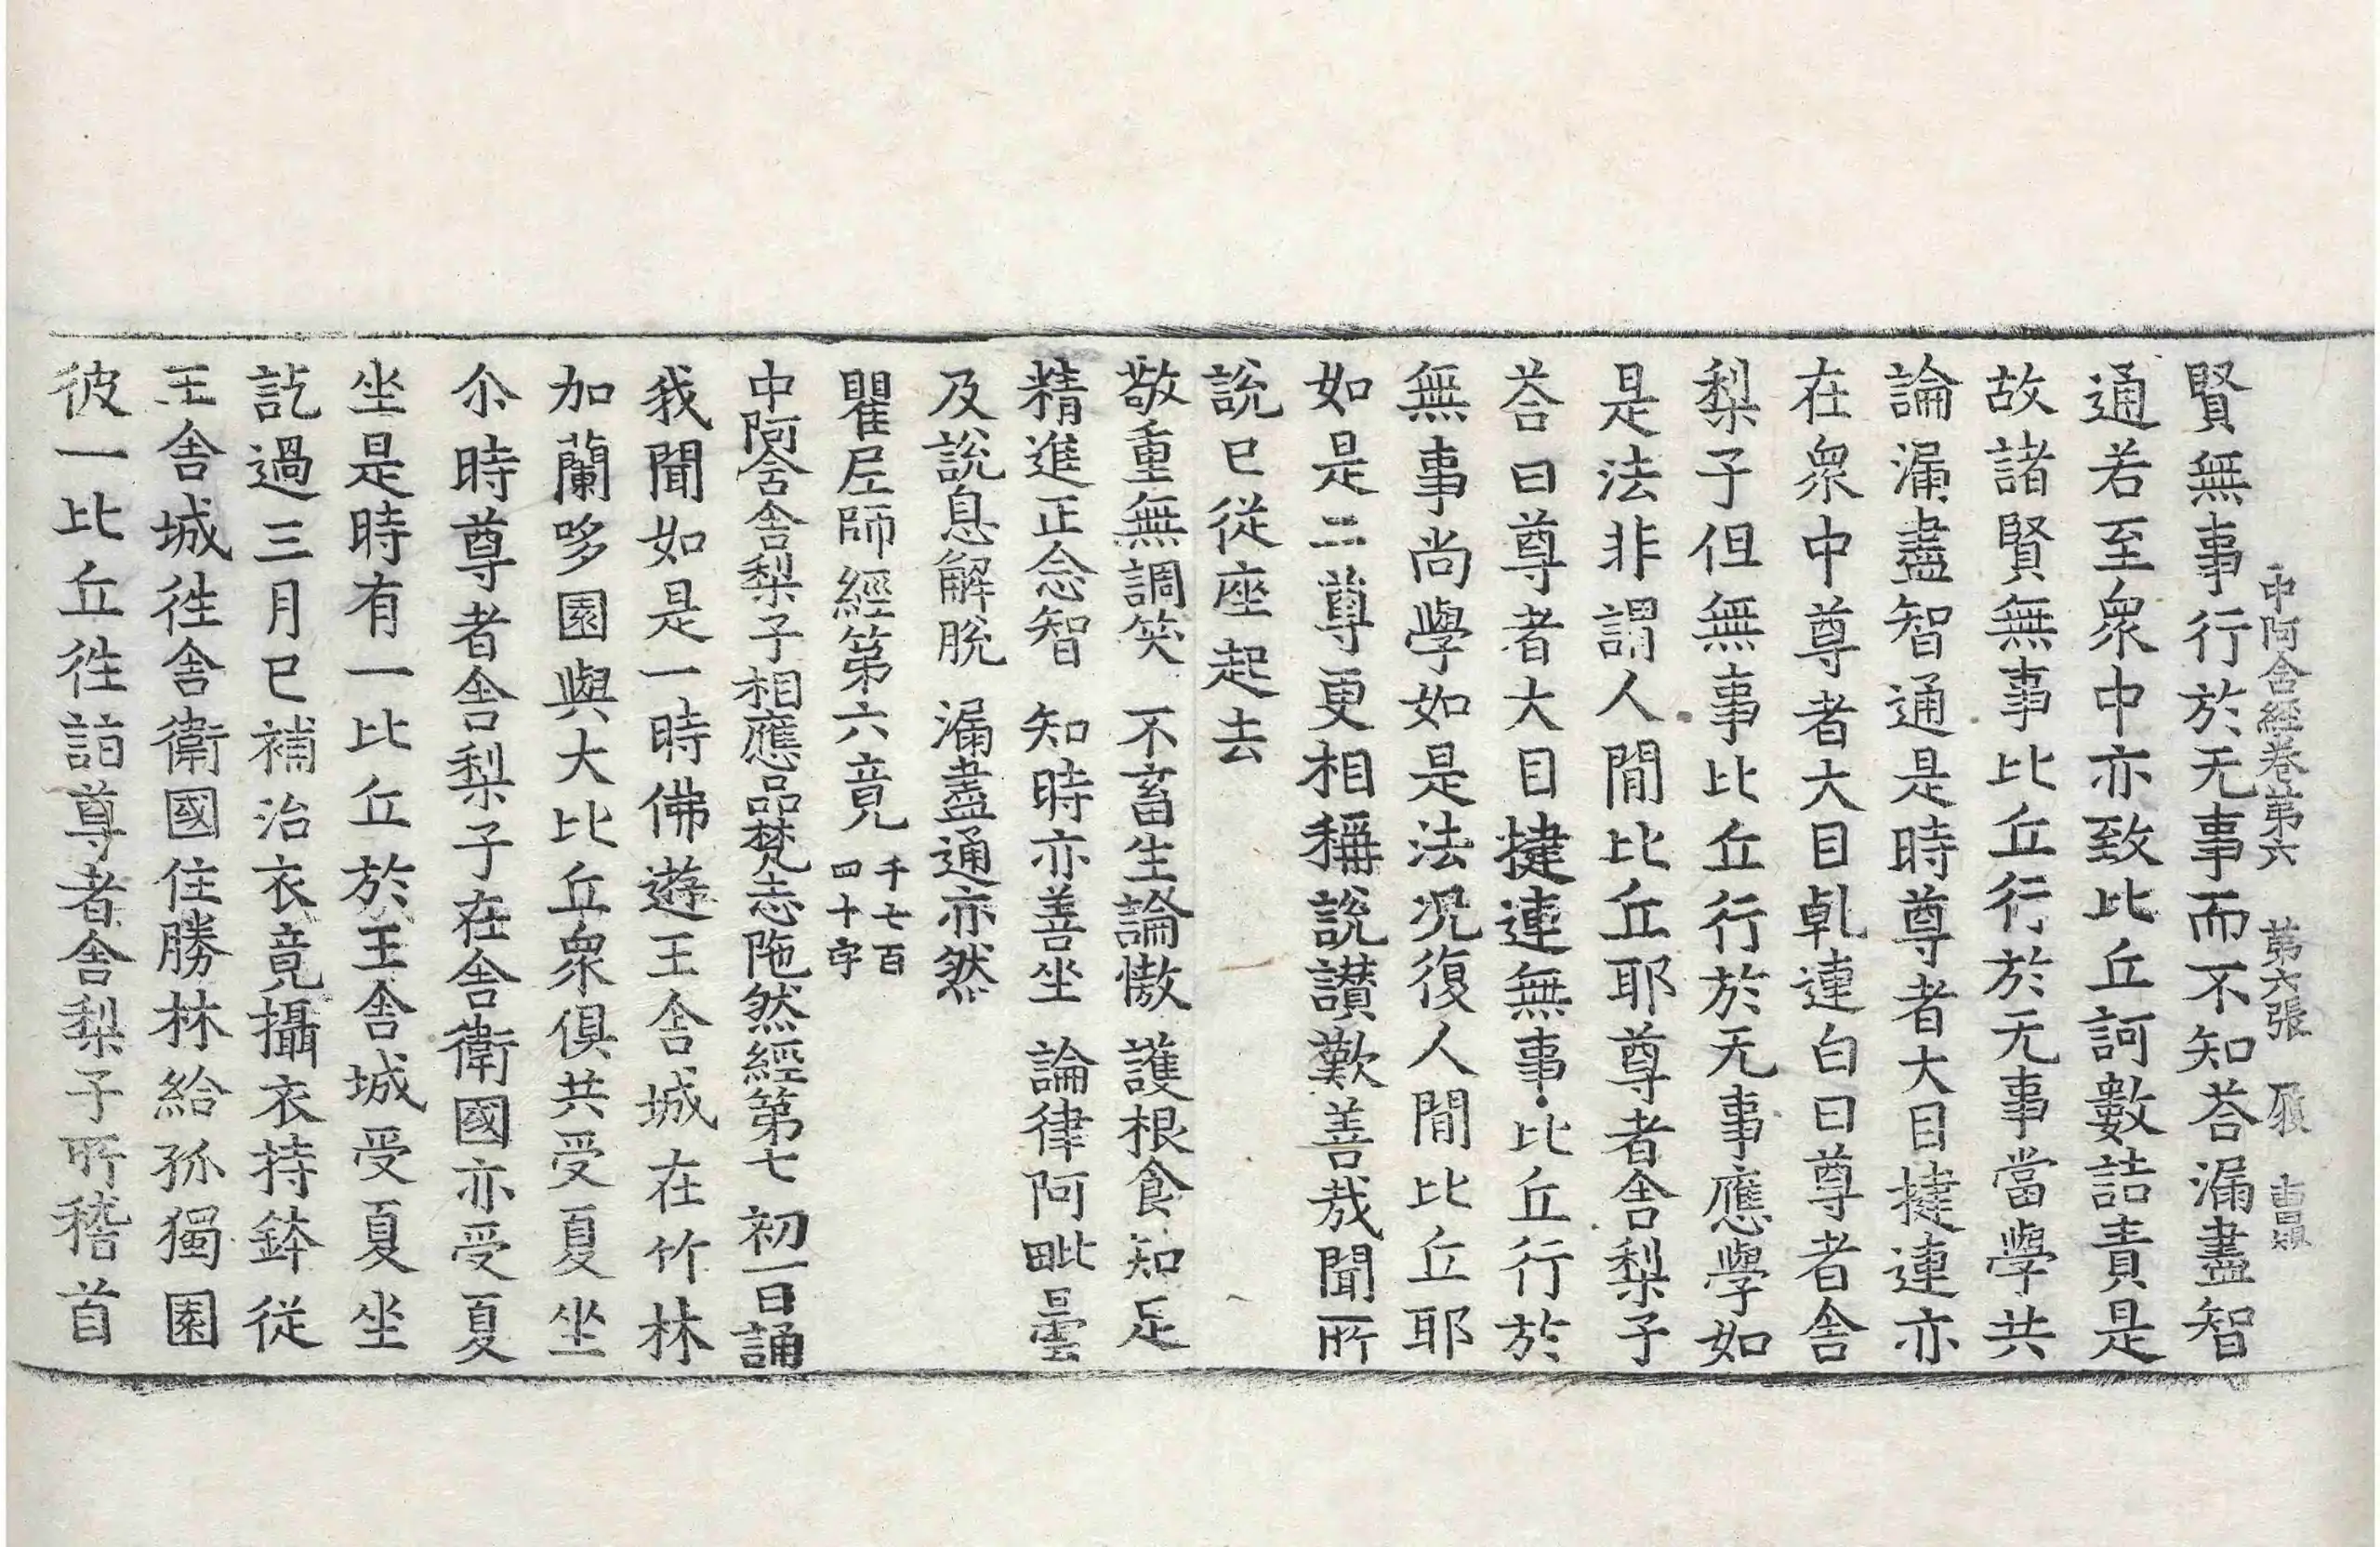 中阿含經卷第六 第六張 㥧
賢無事行於无事而不知荅漏盡智
通若至衆中亦致比丘訶數詰責是
故諸賢無事比丘行於无事當學共
論漏盡智通是時尊者大目揵連亦
在衆中尊者大目乹連白曰尊者舍
梨子但無事比丘行於无事應學如
是法非謂人間比丘耶尊者舍梨子
荅曰尊者大目揵連無事比丘行於
無事尚學如是法况復人間比丘耶
如是二尊更相稱說讃歎善㦲聞所
說已從座起去
敬重無調笑 不畜生論慠 護根食知足
精進正念智 知時亦善坐 論律阿毗曇
及說息解脫 漏盡通亦然
瞿尼師經第六竟 千七百四十字
中阿含舍梨子相應品梵志陁然經第七 初一日誦
我聞如是一時佛遊王舍城在竹林
加蘭哆園與大比丘衆俱共受夏坐
尒時尊者舍梨子在舍衛國亦受夏
坐是時有一比丘於王舍城受夏坐
訖過三月已補治衣竟攝衣持鉢從
王舍城徃舍衛國住勝林給孤獨園
彼一比丘徃詣尊者舍梨子所稽首